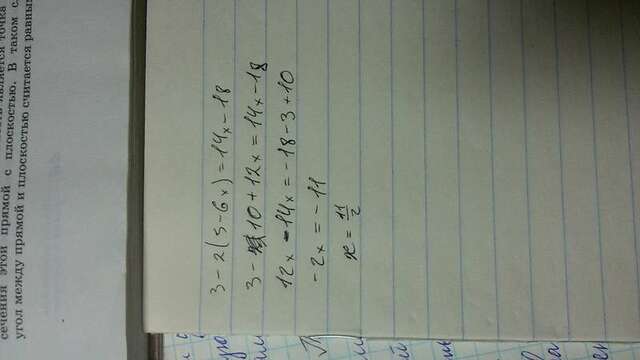 сечения этой прямой с плоскостью. В таком
угол между прямой и плоскостью считается
3 - 2(5-6x) = 14x - 18
3 - 10 + 12x = 14x - 18
12x - 14x = -18 - 3 + 10
-2x = -11
x = 11/2